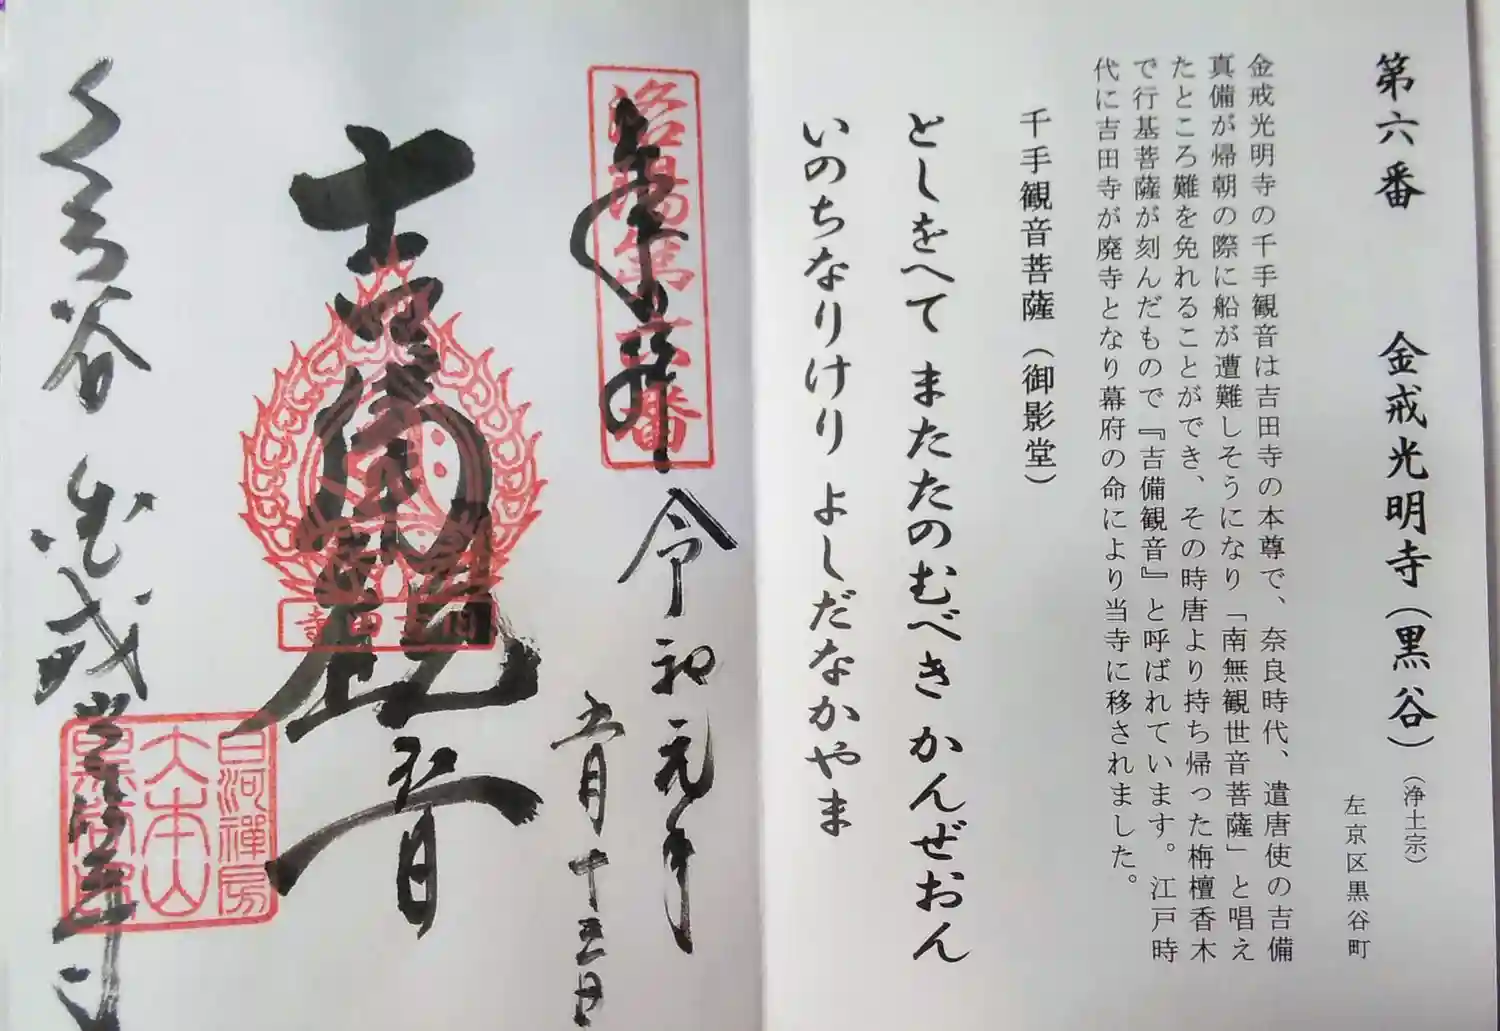 第六番 金戒光明寺(黒谷)(浄土宗)
左京区黒谷町
金戒光明寺の千手観音は吉田寺の本尊で、奈良時代、遣唐使の吉備
真備が帰朝の際に船が遭難しそうになり「南無観世音菩薩」と唱え
たところ難を免れることができ、その時唐より持ち帰った栴檀香木
で行基菩薩が刻んだもので『吉備観音』と呼ばれています。江戸時
代に吉田寺が廃寺となり幕府の命により当寺に移されました。
千手観音菩薩(御影堂)
としをへて またたのむべき かんぜおん
いのちなりけり よしだなかやま
奉拝
洛陽第六番
令和元年
五月十三日
吉備観音
吉田寺
くろ谷 金戒光明寺
白河禅房
大本山